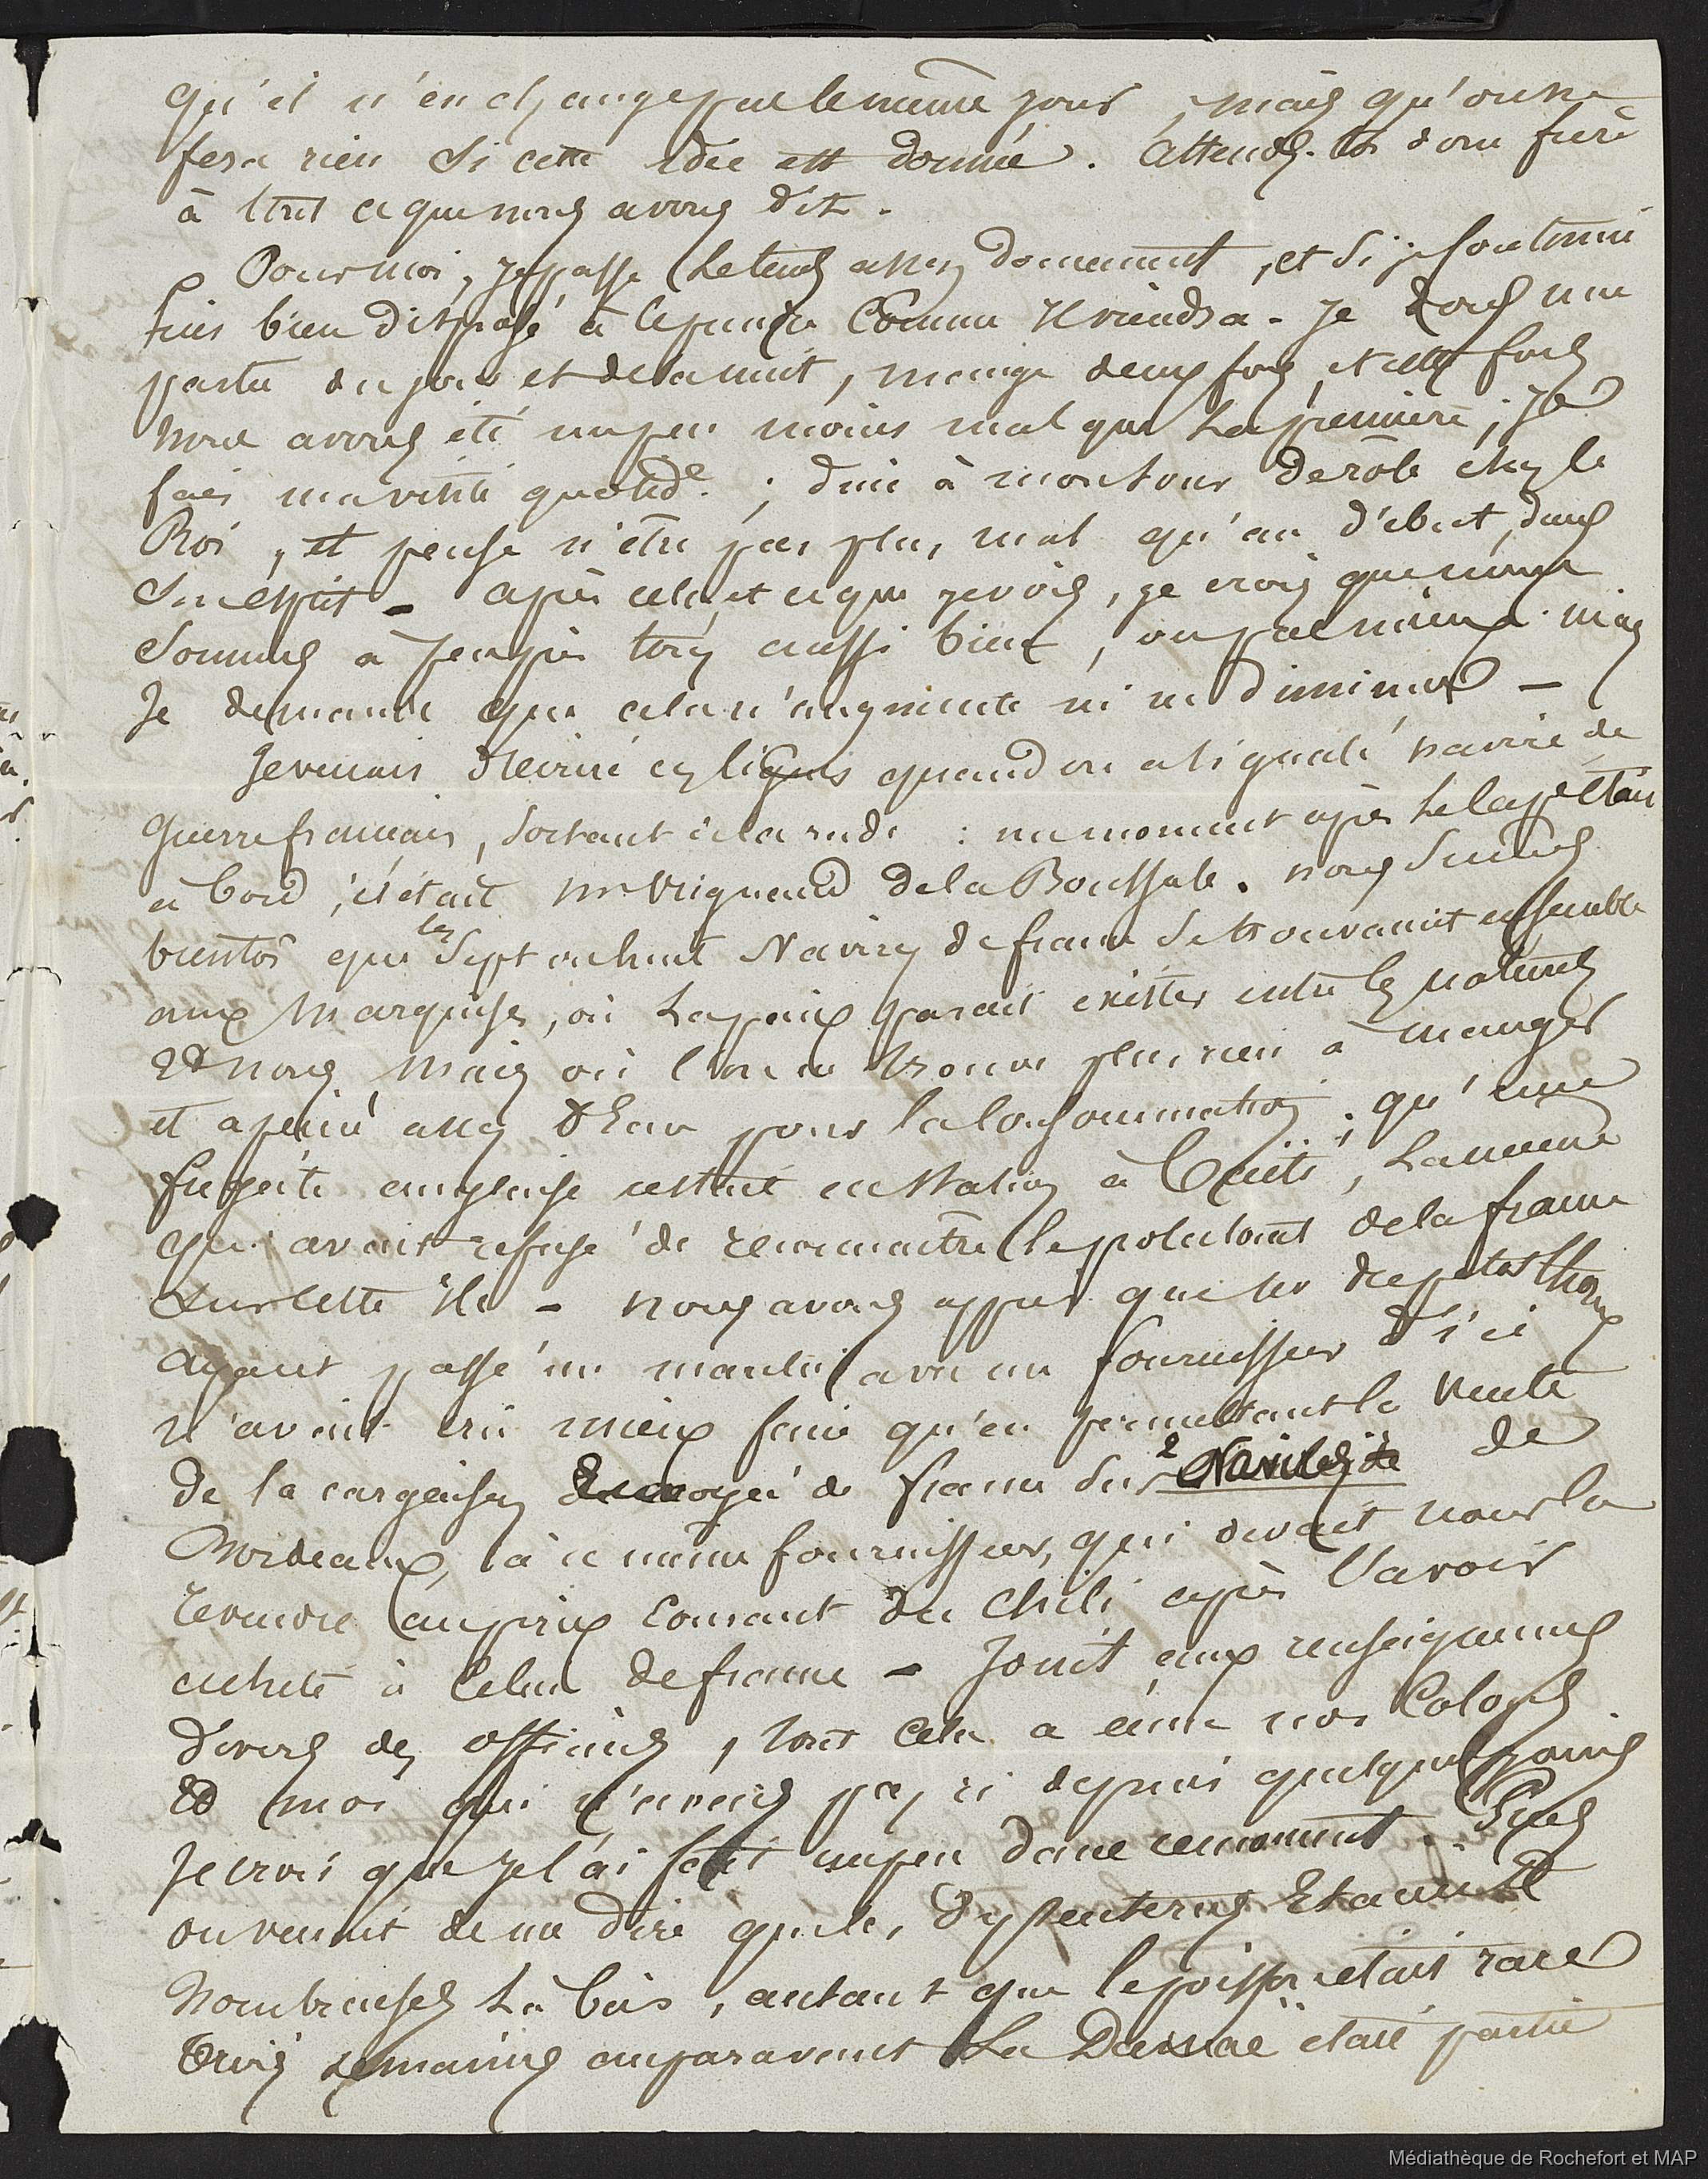 qu'il n'en change pas le même jour, mais qu'on ne
fera rien si cette idée est donnée. Attends-toi donc frère
à tout ce que nous avons dit.
Pour moi, je passe le tems assez doucement, et si je
suis bien disposé à le prendre comme il viendra - Je dors une
partie du jour et de la nuit, mange deux fois, et cette fois
nous avons été un peu moins mal que la première; Je
fais ma visite quotid.e; dîne à mon tour de rôle chez le
Roi, et pense n'être pas plus mal qu'au début, dans
son esprit - après cela, et ce que je vois, je crois que nous
sommes à peu près tous aussi bien, ou pas mieux. mais
Je demande que cela n'augmente ni ne diminue -
Je venais d'écrire ces lignes quand on a signalé navire de
guerre français, sortant de la rade : un moment après le cap.e était
à bord, c'était mr Vrignaud de la Boussole. nous sûmes
bientôt que les sept ou huit Navires de france se trouvaient ensemble
aux Marquises, où la paix parait exister entre les naturels
et nous, mais où l'on ne trouve plus rien à manger
et à peine assez d'Eau pour la consommation; qu'une
frégate anglaise restait en station à Taïti, la même
qui avait refusé de reconnaître le protectorat de la france
sur cette île - nous avons appris que
ayant passé un marché avec un fournisseur d'ici
n'avait cru mieux faire qu'en permettant la vente
de la cargaison envoyée de france sur 2 Navires de
Bordeaux, à ce même fournisseur, qui devait nous la
revendre au prix courant du Chili après l'avoir
acheté à celui de france - Joint aux renseignemens
divers des officiers, tout cela a
et moi qui n'avais pas ri depuis quelques jours
Je crois que je l'ai fait un peu dans ce moment. Puis
on venait de me dire que les dyssenteries Etaient
nombreuses là bas, autant que le poisson était rare
trois semaines auparavant La Danaë était partie